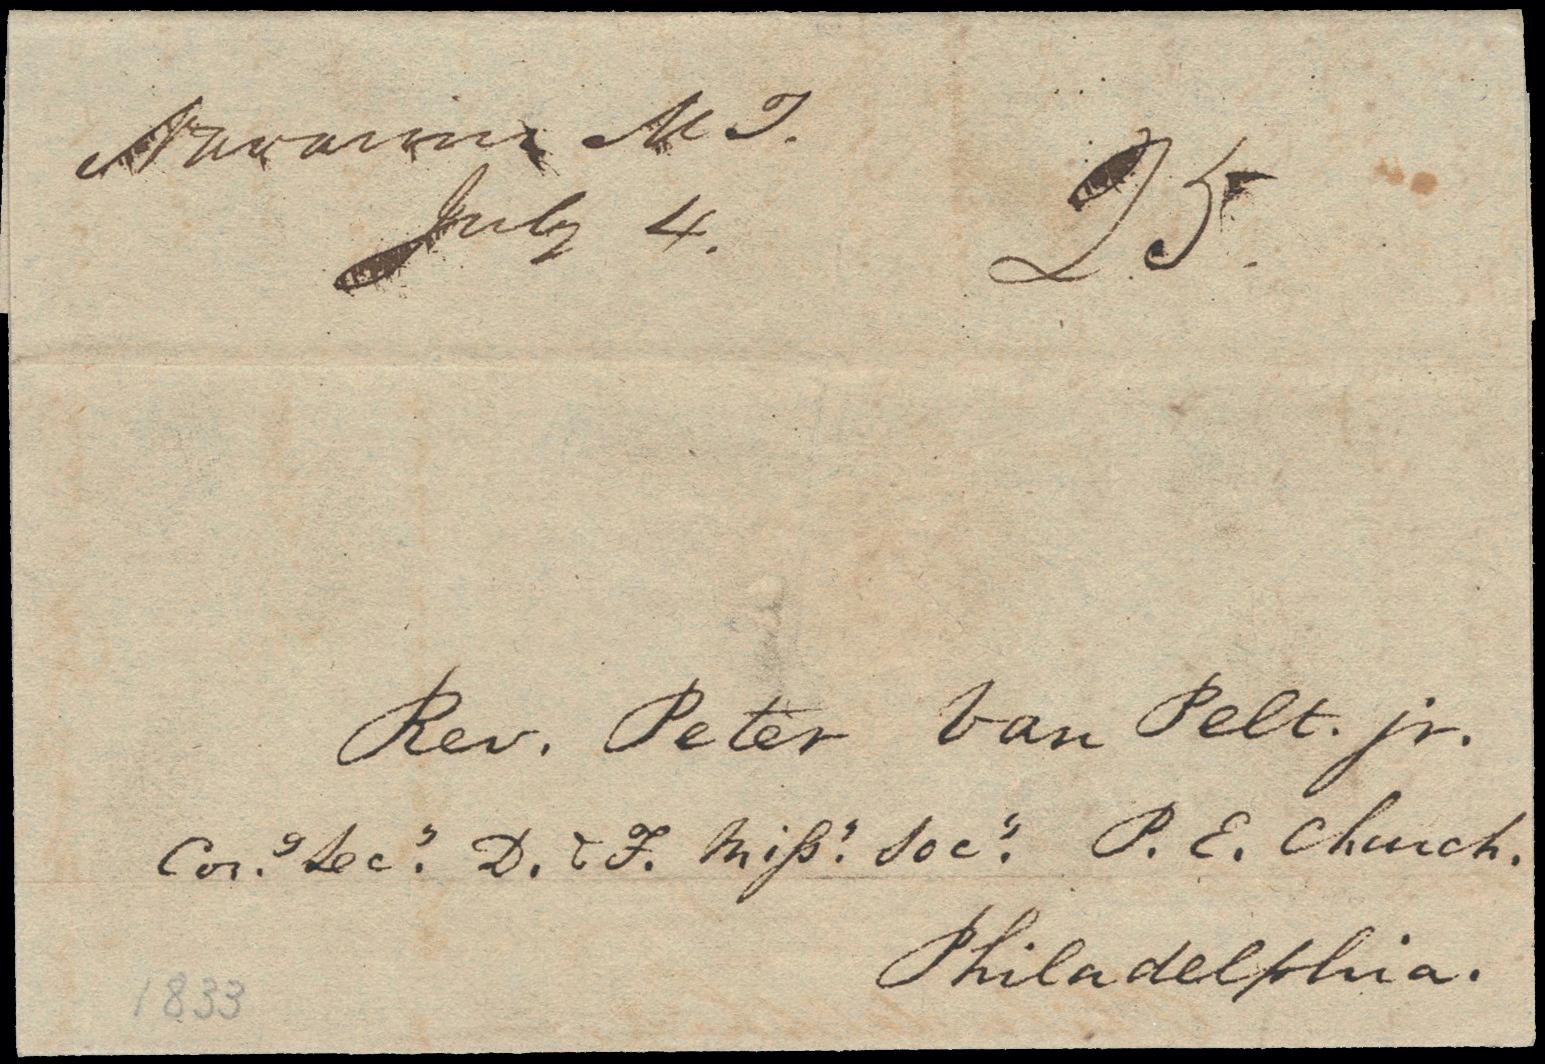 Navarino M T.
July 4.
25.
Rev. Peter Van Pelt. jr.
Cor.^g Sec^y. D. & F. Miſs^y. Soc^y. P. E. Church.
Philadelphia.
1833